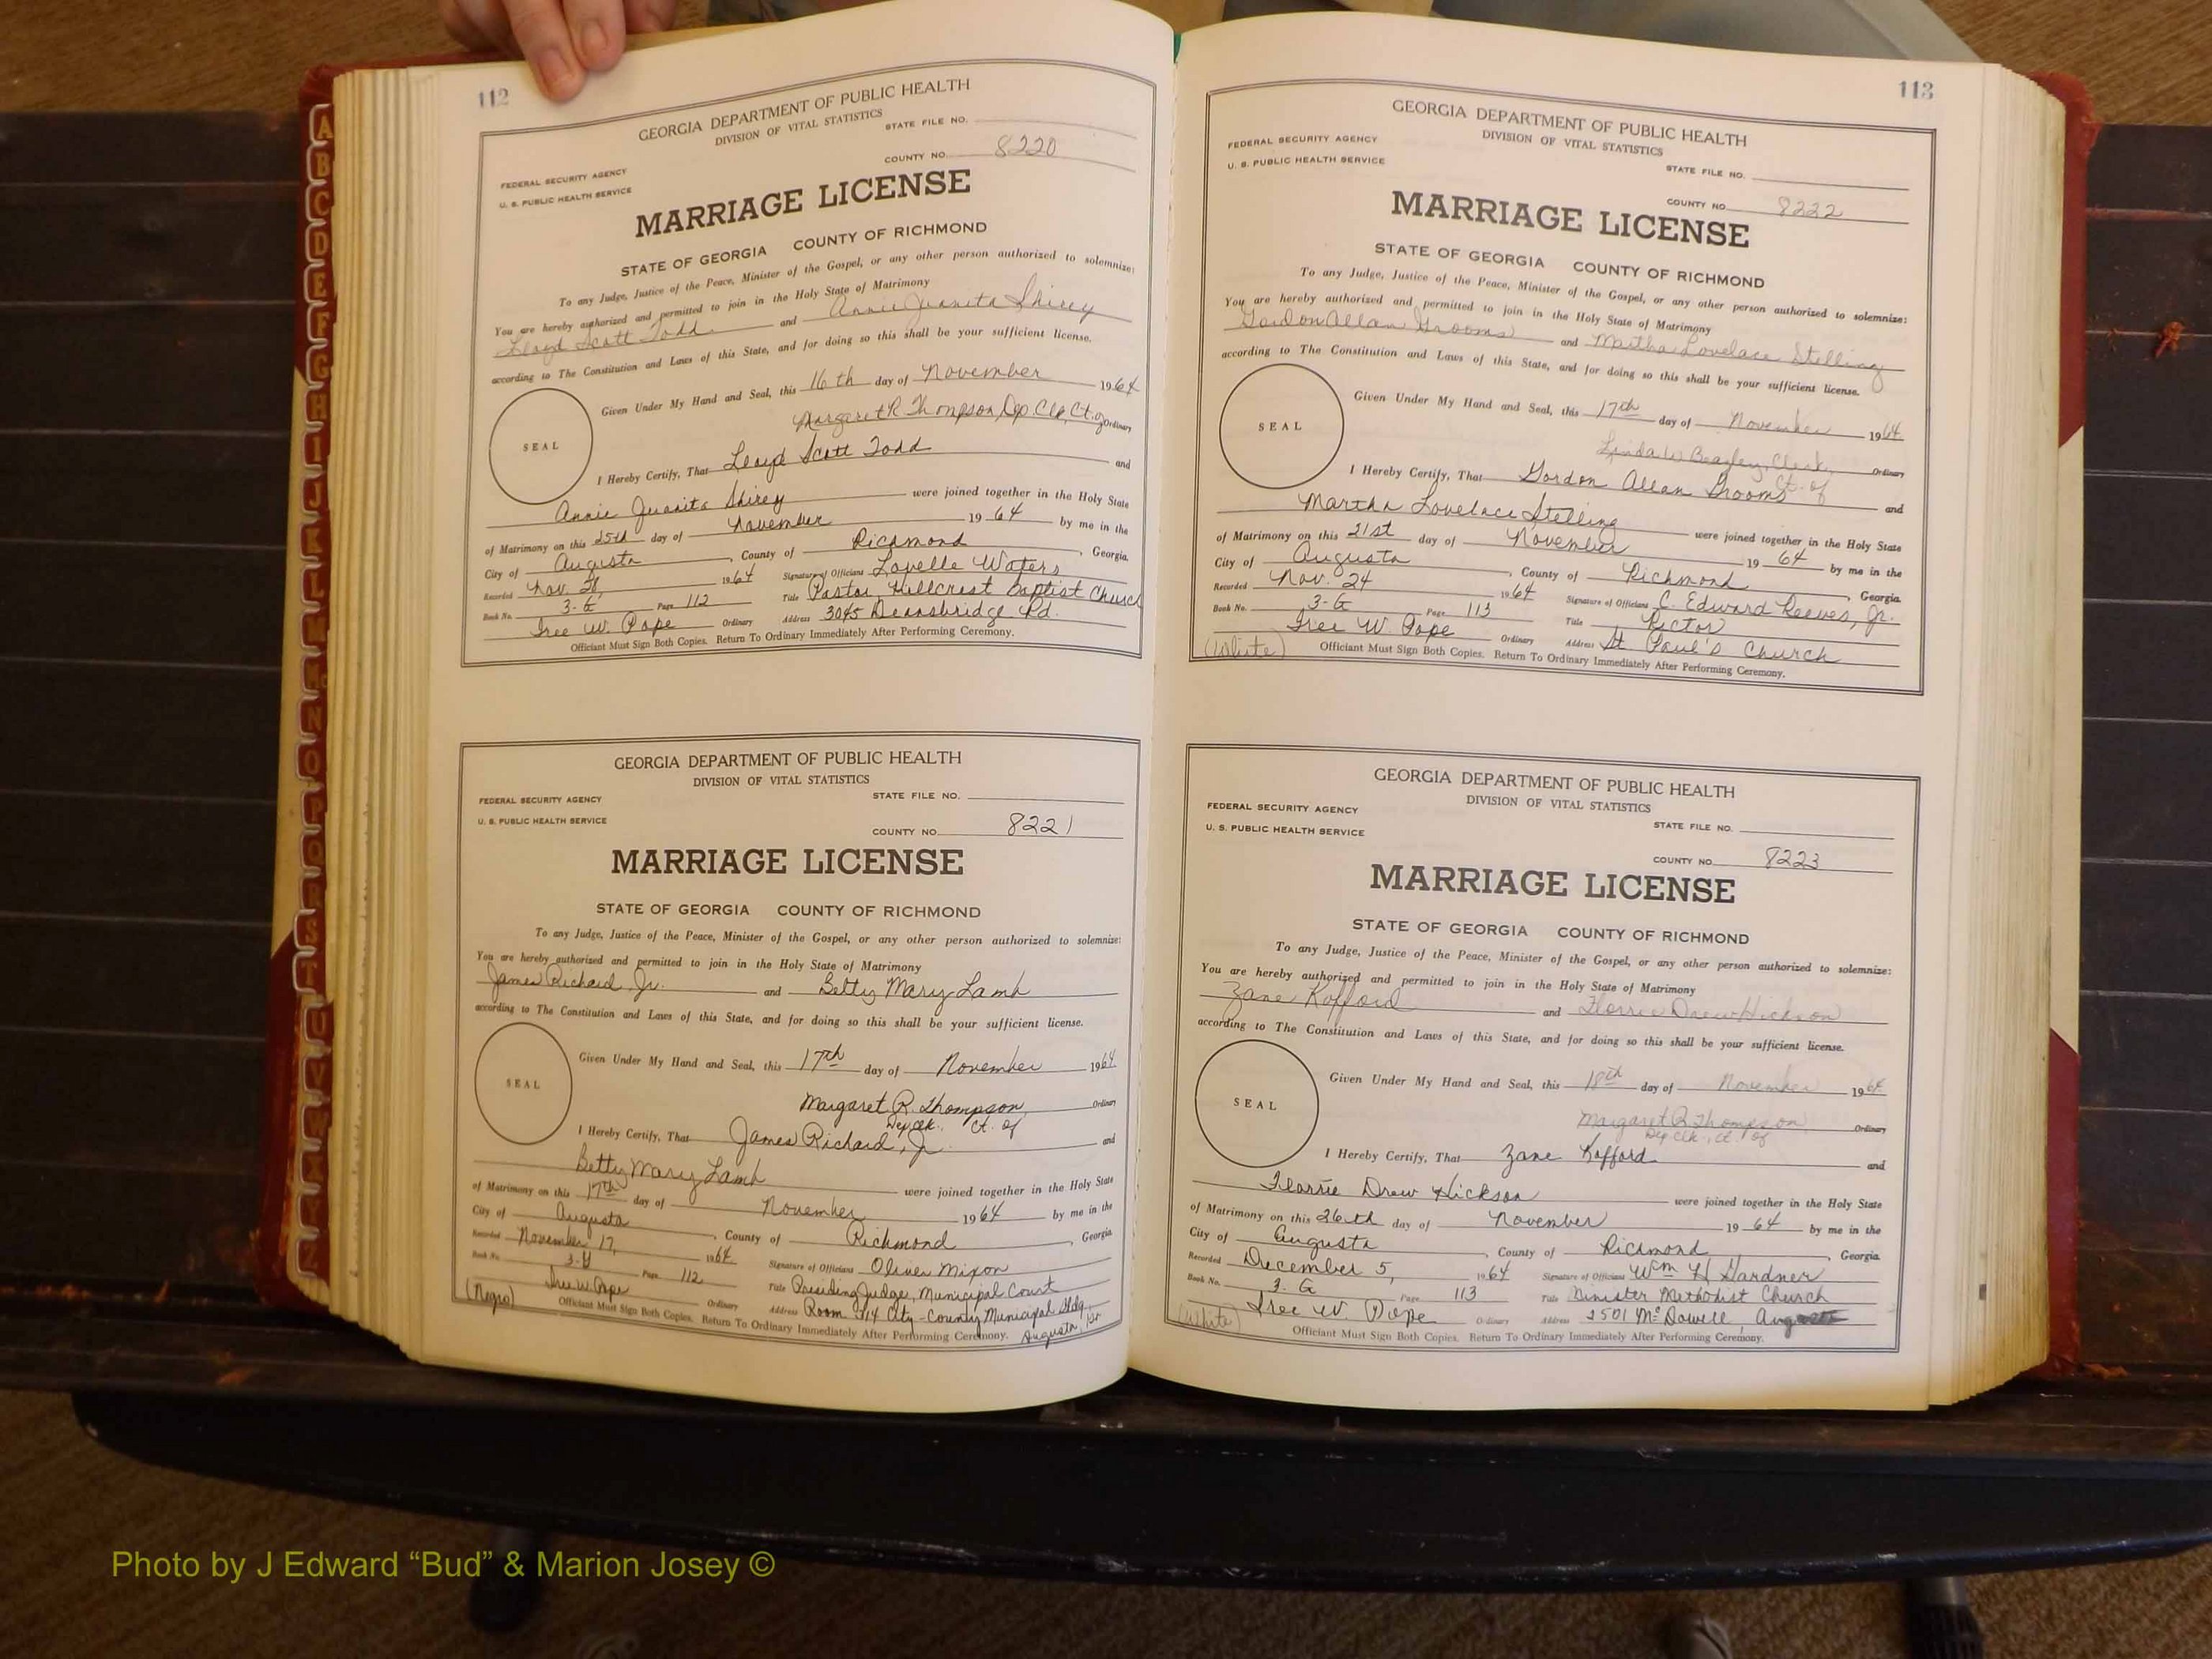 112
GEORGIA DEPARTMENT OF PUBLIC HEALTH
DIVISION OF VITAL STATISTICS
STATE FILE NO.
FEDERAL SECURITY AGENCY
U. S. PUBLIC HEALTH SERVICE
COUNTY NO. 8220
MARRIAGE LICENSE
STATE OF GEORGIA COUNTY OF RICHMOND
To any Judge, Justice of the Peace, Minister of the Gospel, or any other person authorized to solemnize:
You are hereby authorized and permitted to join in the Holy State of Matrimony
Lloyd Scott Todd and Annie Juanita Shirey
according to The Constitution and Laws of this State, and for doing so this shall be your sufficient license.
SEAL
Given Under My Hand and Seal, this 16th day of November 1964
Margaret R. Thompson, Dep. Clk, Ct. of Ordinary
I Hereby Certify, That Lloyd Scott Todd and
Annie Juanita Shirey were joined together in the Holy State
of Matrimony on this 25th day of November 19 64 by me in the
City of Augusta, County of Richmond, Georgia.
Recorded Nov. 28, 1964 Signature of Officiant Lovelle Waters
Book No. 3-G Page 112 Title Pastor, Hillcrest Baptist Church
Iree W. Pope Ordinary Address 3045 Deansbridge Rd.
Officiant Must Sign Both Copies. Return To Ordinary Immediately After Performing Ceremony.
GEORGIA DEPARTMENT OF PUBLIC HEALTH
DIVISION OF VITAL STATISTICS
STATE FILE NO.
FEDERAL SECURITY AGENCY
U. S. PUBLIC HEALTH SERVICE
COUNTY NO. 8221
MARRIAGE LICENSE
STATE OF GEORGIA COUNTY OF RICHMOND
To any Judge, Justice of the Peace, Minister of the Gospel, or any other person authorized to solemnize:
You are hereby authorized and permitted to join in the Holy State of Matrimony
James Richard, Jr. and Betty Mary Lamb
according to The Constitution and Laws of this State, and for doing so this shall be your sufficient license.
SEAL
Given Under My Hand and Seal, this 17th day of November 1964
Margaret R. Thompson, Ordinary
Dep Clk., Ct. of
I Hereby Certify, That James Richard, Jr. and
Betty Mary Lamb were joined together in the Holy State
of Matrimony on this 17th day of November 1964 by me in the
City of Augusta, County of Richmond, Georgia
Recorded November 17, 1964 Signature of Officiant Oliver Mixon
Book No. 3-G Page 112 Title Presiding Judge, Municipal Court
Iree W. Pope Ordinary Address Room 314 City-County Municipal Bldg.,
Augusta, Ga
(Negro) Officiant Must Sign Both Copies. Return To Ordinary Immediately After Performing Ceremony.
113
GEORGIA DEPARTMENT OF PUBLIC HEALTH
DIVISION OF VITAL STATISTICS
FEDERAL SECURITY AGENCY
U. S. PUBLIC HEALTH SERVICE
STATE FILE NO.
COUNTY NO. 8222
MARRIAGE LICENSE
STATE OF GEORGIA COUNTY OF RICHMOND
To any Judge, Justice of the Peace, Minister of the Gospel, or any other person authorized to solemnize:
You are hereby authorized and permitted to join in the Holy State of Matrimony
Gordon Allan Grooms and Martha Lovelace Stelling
according to The Constitution and Laws of this State, and for doing so this shall be your sufficient license.
SEAL
Given Under My Hand and Seal, this 17th day of November 1964
Linda W. Beazley, Clerk, Ordinary
Ct. of
I Hereby Certify, That Gordon Allan Grooms and
Martha Lovelace Stelling were joined together in the Holy State
of Matrimony on this 21st day of November 19 64 by me in the
City of Augusta, County of Richmond, Georgia.
Recorded Nov. 24 1964 Signature of Officiant C. Edward Reeves, Jr.
Book No. 3-G Page 113 Title Rector
Iree W. Pope Ordinary Address St. Paul's Church
(White) Officiant Must Sign Both Copies. Return To Ordinary Immediately After Performing Ceremony.
GEORGIA DEPARTMENT OF PUBLIC HEALTH
DIVISION OF VITAL STATISTICS
FEDERAL SECURITY AGENCY
U. S. PUBLIC HEALTH SERVICE
STATE FILE NO.
COUNTY NO. 8223
MARRIAGE LICENSE
STATE OF GEORGIA COUNTY OF RICHMOND
To any Judge, Justice of the Peace, Minister of the Gospel, or any other person authorized to solemnize:
You are hereby authorized and permitted to join in the Holy State of Matrimony
Zane Kofford and Florrie Drew Hickson
according to The Constitution and Laws of this State, and for doing so this shall be your sufficient license.
SEAL
Given Under My Hand and Seal, this 18th day of November 1964
Margaret R. Thompson Ordinary
Dep Clk., Ct. of
I Hereby Certify, That Zane Kofford and
Florrie Drew Hickson were joined together in the Holy State
of Matrimony on this 26th day of November 19 64 by me in the
City of Augusta, County of Richmond, Georgia.
Recorded December 5, 1964 Signature of Officiant Wm H Gardner
Book No. 3-G Page 113 Title Minister Methodist Church
Iree W. Pope Ordinary Address 2501 McDowell, Augusta
(White) Officiant Must Sign Both Copies. Return To Ordinary Immediately After Performing Ceremony.
A
B
C
D
E
F
G
H
I
J
K
L
M
Mc
N
O
P
Q
R
S
T
U
V
W
X
Y
Z
Photo by J Edward “Bud” & Marion Josey ©